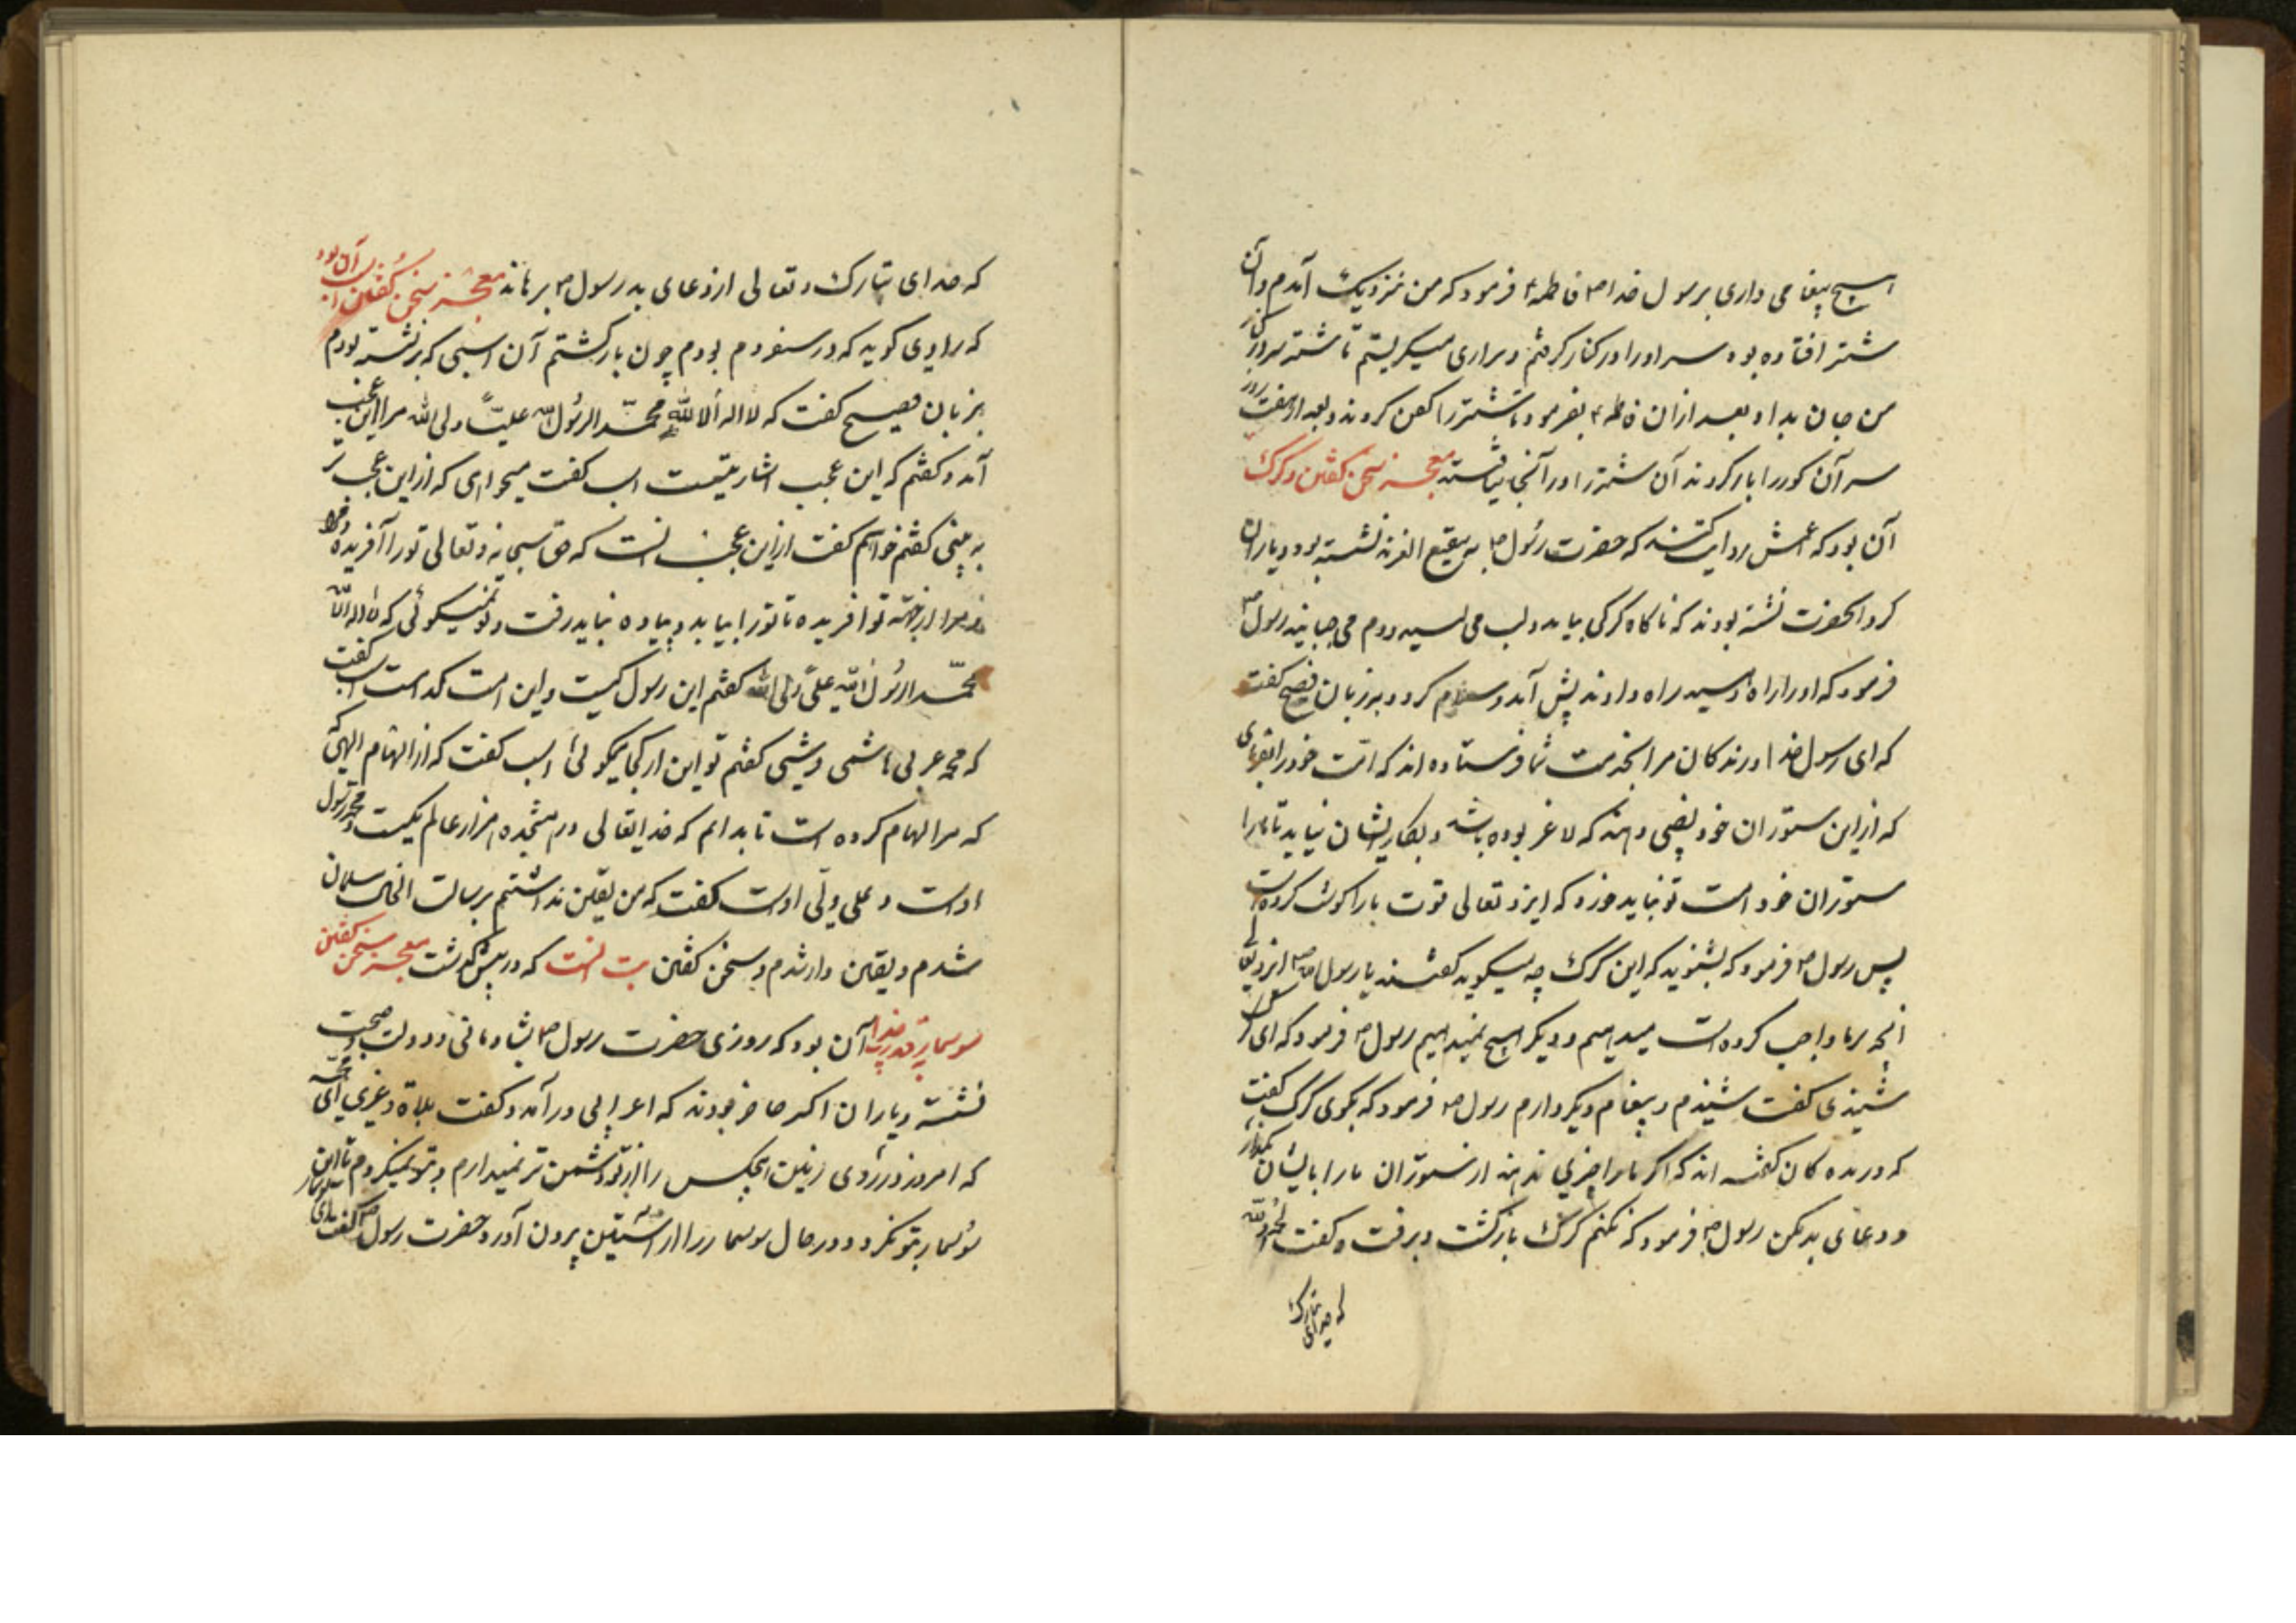 هیچ پیغامی داری برسول خدا ص فاطمه ع فرمود که من نزدیک آمدم و آن
شتر افتاده بود سر او را در کنار گرفتم و بزاری میگریستم تا شتر سر در کنار
من جان بداد بعد از آن فاطمه ع بفرمود تا شتر را کفن کردند و بعد از هفت روز
سر آن گور را باز کردند آن شتر را در آنجا نیافتند معجزه سخن گفتن گرگ
آن بود که اعمش روایت کند که حضرت رسول ص به بقیع الغرقد نشسته بود و یاران
گرد آنحضرت نشسته بودند که ناگاه گرگی بیامد و لب می لیسید و دم می جنبانید رسول ص
فرمود که او را راه دهید راه دادند پیش آمد و سلام کرد و بزبان فصیح گفت
که ای رسول خدا درندگان مرا بخدمت شما فرستاده اند که امت خود را بفرمای
که از این ستوران خود نصیبی دهند که لاغر بوده باشد و بکار ایشان نیاید تا ما را
ستوران خود امت تو نباید خورد که ایزد تعالی قوت ما را گوشت کرده است
پس رسول ص فرمود که بشنوید که این گرگ چه میگوید گفتند یا رسول الله ص ایزد تعالی
آنچه بر ما واجب کرده است میدهیم و دیگر هیچ نمیدهیم رسول ص فرمود که ای گرگ
شنیدی گفت شنیدم و پیغام دیگر دارم رسول ص فرمود که بگوی گرگ گفت
که درنده گان گفته اند که اگر ما را چیزی ندهند از ستوران ما را با ایشان بگذار
و دعای بد مکن رسول ص فرمود که نکنم گرگ بازگشت و برفت و گفت الحمد لله
که خدای تبارک
که خدای تبارک و تعالی از دعای بد رسول ص برهاند معجزه سخن گفتن اسب آن بود
که راوی گوید که در سفر دم بودم چون بازگشتم آن اسبی که برنشسته بودم
بزبان فصیح گفت که لا اله الا الله محمد الرسول الله علیّاً ولی الله مرا این عجب
آمد و گفتم که این عجب اسب گفت میخواهی که از این عجب تر
به بینی گفتم خواهم گفت از این عجب تر آنست که حق سبحانه و تعالی تو را آفریده
و مرا از جهة تو آفریده تا تو را بیابد پیاده نباید رفت و تو نمیگوئی که لا اله الا الله
محمد الرسول الله علیّ ولی الله گفتم این رسول کیست و این امت کدامست اسب گفت
که محمد عربی هاشمی قرشی گفتم تو این از کجا میگوئی اسب گفت که از الهام الهی که
که مرا الهام کرده است تا بدانم که خدایتعالی در هیجده هزار عالم یکیست و محمد رسول
اوست و علی ولی اوست گفت که من یقین نداشتم برسالت انحال مسلمان
شدم و یقین دار شدم و سخن گفتن بت آنست که در پیش گذشت معجزه سخن گفتن
سوسمار آن بود که روزی حضرت رسول ص بشادمانی و دولت صحبت
نشسته و یاران اکثر حاضر بودند که اعرابی در آمد و گفت بلات و عزی ای محمد
که امروز در روی زمین هیچکس را از تو دشمن تر نمیدارم و بتو نمیگروم تا این سوسمار
سوسمار بتو نگرود در حال سوسمار را از آستین بیرون آورد حضرت رسول ص گفت